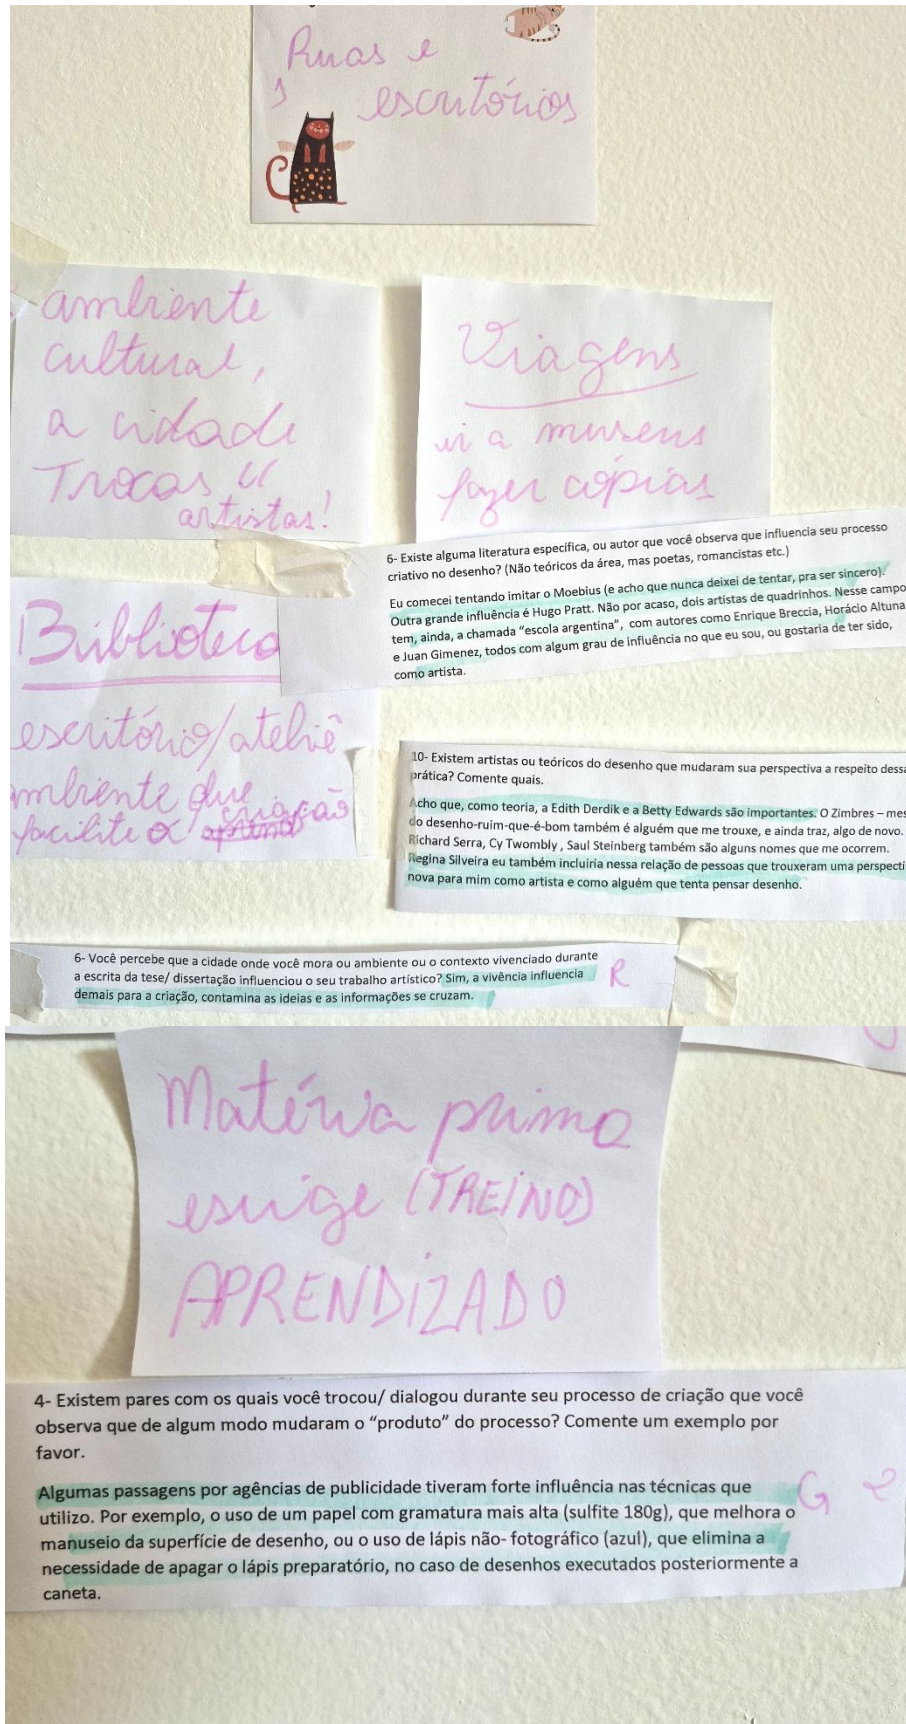 Ruas e
escritórios
ambiente
cultural,
a cidade
Trocas
artistas!
Viagens
ir a museus
fazer cópias
6- Existe alguma literatura específica, ou autor que você observa que influencia seu processo
criativo no desenho? (Não teóricos da área, mas poetas, romancistas etc.)
Eu comecei tentando imitar o Moebius (e acho que nunca deixei de tentar, pra ser sincero).
Outra grande influência é Hugo Pratt. Não por acaso, dois artistas de quadrinhos. Nesse campo
tem, ainda, a chamada “escola argentina”, com autores como Enrique Breccia, Horácio Altuna
e Juan Gimenez, todos com algum grau de influência no que eu sou, ou gostaria de ter sido,
como artista.
Biblioteca
escritório/ateliê
ambiente que
facilite a criação
10- Existem artistas ou teóricos do desenho que mudaram sua perspectiva a respeito dessa
prática? Comente quais.
Acho que, como teoria, a Edith Derdik e a Betty Edwards são importantes. O Zimbres – mes
do desenho-ruim-que-é-bom também é alguém que me trouxe, e ainda traz, algo de novo.
Richard Serra, Cy Twombly , Saul Steinberg também são alguns nomes que me ocorrem.
Regina Silveira eu também incluiria nessa relação de pessoas que trouxeram uma perspecti
nova para mim como artista e como alguém que tenta pensar desenho.
6- Você percebe que a cidade onde você mora ou ambiente ou o contexto vivenciado durante
a escrita da tese/ dissertação influenciou o seu trabalho artístico? Sim, a vivência influencia
demais para a criação, contamina as ideias e as informações se cruzam.
R
Matéria prima
exige (TREINO)
APRENDIZADO
4- Existem pares com os quais você trocou/ dialogou durante seu processo de criação que você
observa que de algum modo mudaram o “produto” do processo? Comente um exemplo por
favor.
Algumas passagens por agências de publicidade tiveram forte influência nas técnicas que
utilizo. Por exemplo, o uso de um papel com gramatura mais alta (sulfite 180g), que melhora o
manuseio da superfície de desenho, ou o uso de lápis não- fotográfico (azul), que elimina a
necessidade de apagar o lápis preparatório, no caso de desenhos executados posteriormente a
caneta.
G 2